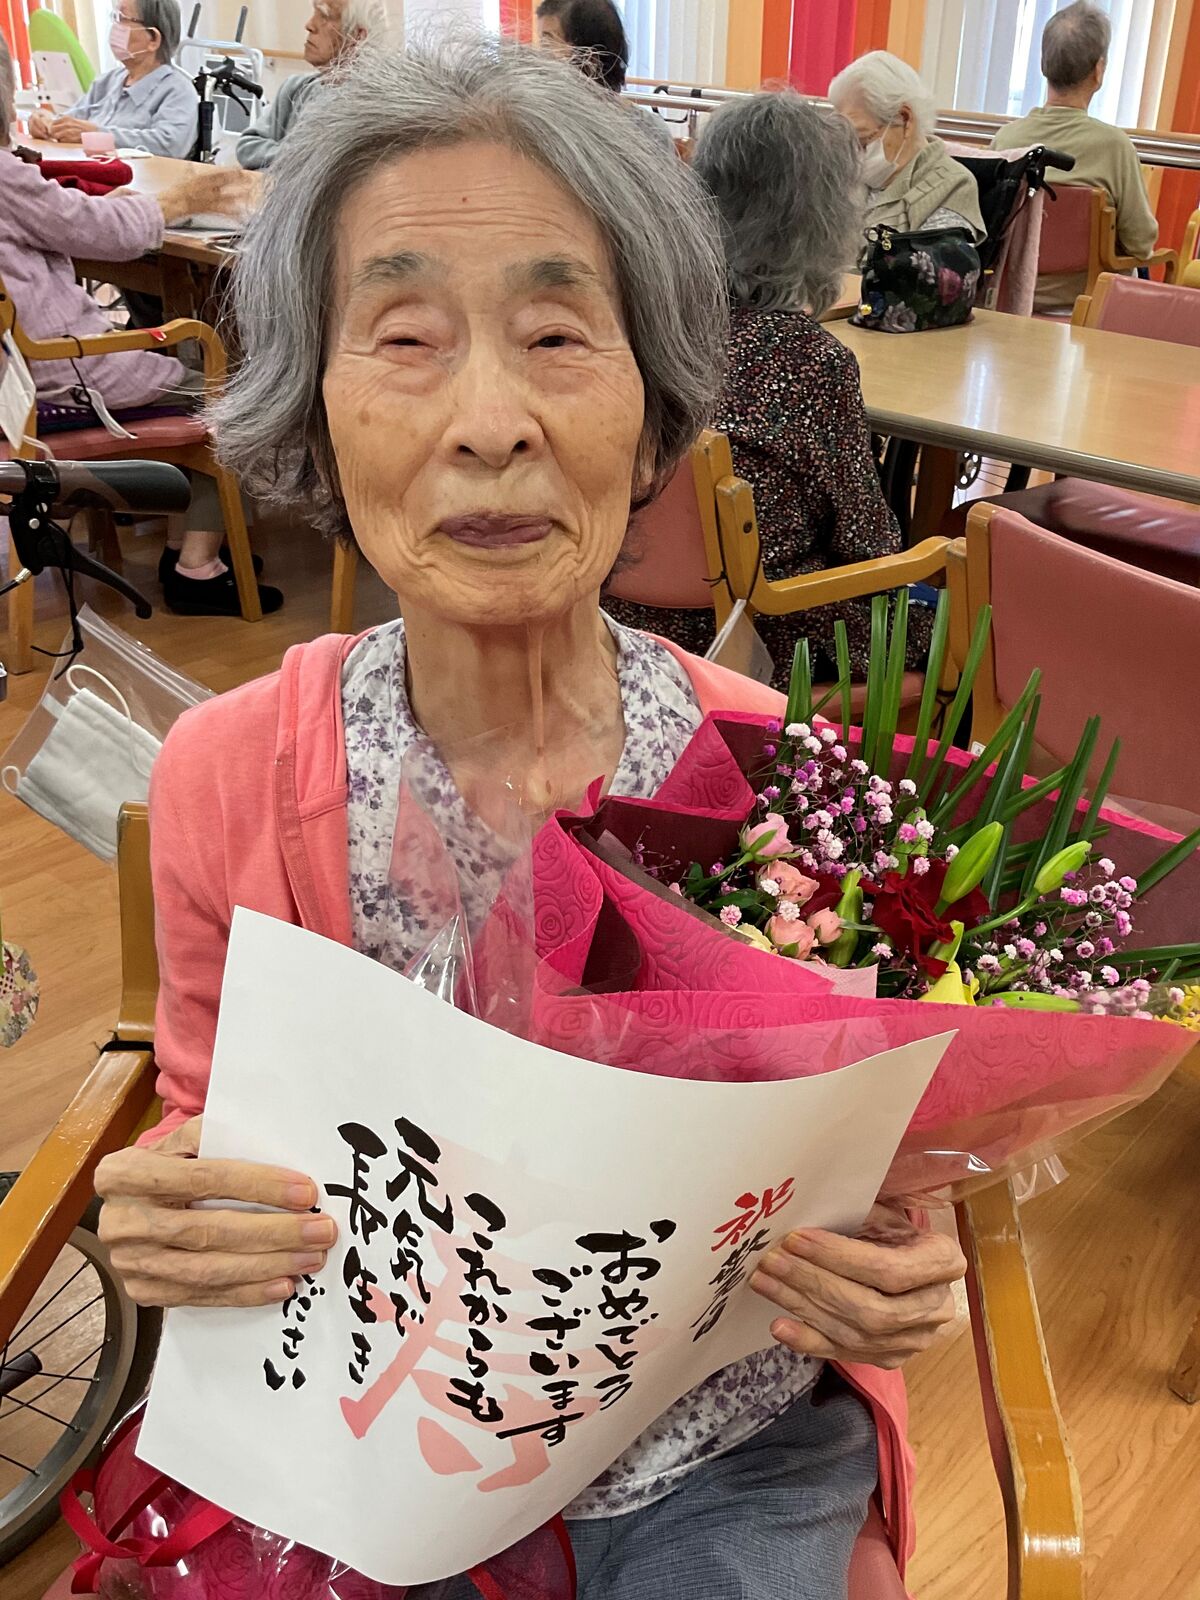 祝敬老
おめでとう
ございます
これからも
元気で
長生き
ください
寿